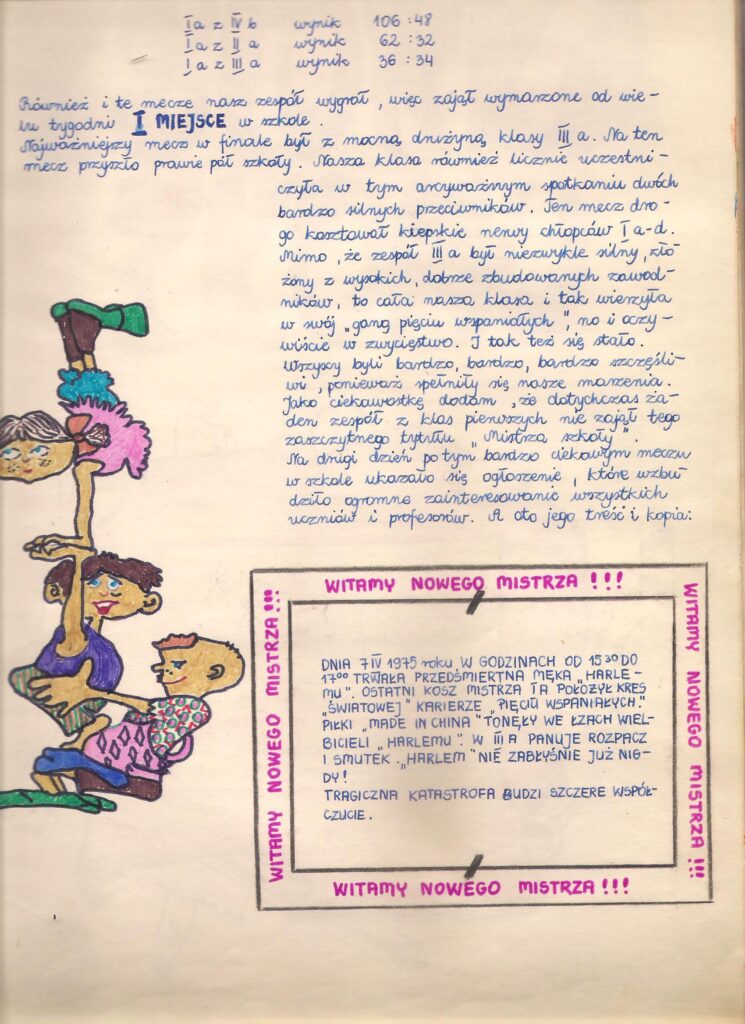 Ia z IV b wynik 106 : 48
Ia z II a wynik 62 : 32
Ia z III a wynik 36 : 34
Również i te mecze nasz zespół wygrał, więc zajął wymarzone od wie-
lu tygodni I MIEJSCE w szkole.
Najważniejszy mecz w finale był z mocną drużyną klasy III a. Na ten
mecz przyszło prawie pół szkoły. Nasza klasa również licznie uczestni-
czyła w tym arcyważnym spotkaniu dwóch
bardzo silnych przeciwników. Ten mecz dro-
go kosztował kiepskie nerwy chłopców I a-d.
Mimo, że zespół III a był niezwykle silny, zło-
żony z wysokich, dobrze zbudowanych zawod-
ników, to cała nasza klasa i tak wierzyła
w swój „gang pięciu wspaniałych", no i oczy-
wiście w zwycięstwo. I tak też się stało.
Wszyscy byli bardzo, bardzo, bardzo szczęśli-
wi, ponieważ spełniły się nasze marzenia.
Jako ciekawostkę dodam, że dotychczas ża-
den zespół z klas pierwszych nie zajął tego
zaszczytnego tytułu „Mistrza szkoły".
Na drugi dzień po tym bardzo ciekawym meczu
w szkole ukazało się ogłoszenie, które wzbu
dziło ogromne zainteresowanie wszystkich
uczniów i profesorów. A oto jego treść i kopia:
WITAMY NOWEGO MISTRZA !!!
WITAMY NOWEGO MISTRZA !!!
WITAMY NOWEGO MISTRZA !!!
DNIA 7 IV 1975 roku W GODZINACH OD 15 30 DO
17 00 TRWAŁA PRZEDŚMIERTNA MĘKA „HARLE-
MU". OSTATNI KOSZ MISTRZA IA POŁOŻYŁ KRES
„ŚWIATOWEJ" KARIERZE „PIĘCIU WSPANIAŁYCH."
PIŁKI „MADE IN CHINA" TONĘŁY WE ŁZACH WIEL-
BICIELI „HARLEMU". W III A PANUJE ROZPACZ
I SMUTEK. „HARLEM" NIE ZABŁYŚNIE JUŻ NIG-
DY!
TRAGICZNA KATASTROFA BUDZI SZCZERE WSPÓŁ-
CZUCIE.
WITAMY NOWEGO MISTRZA !!!